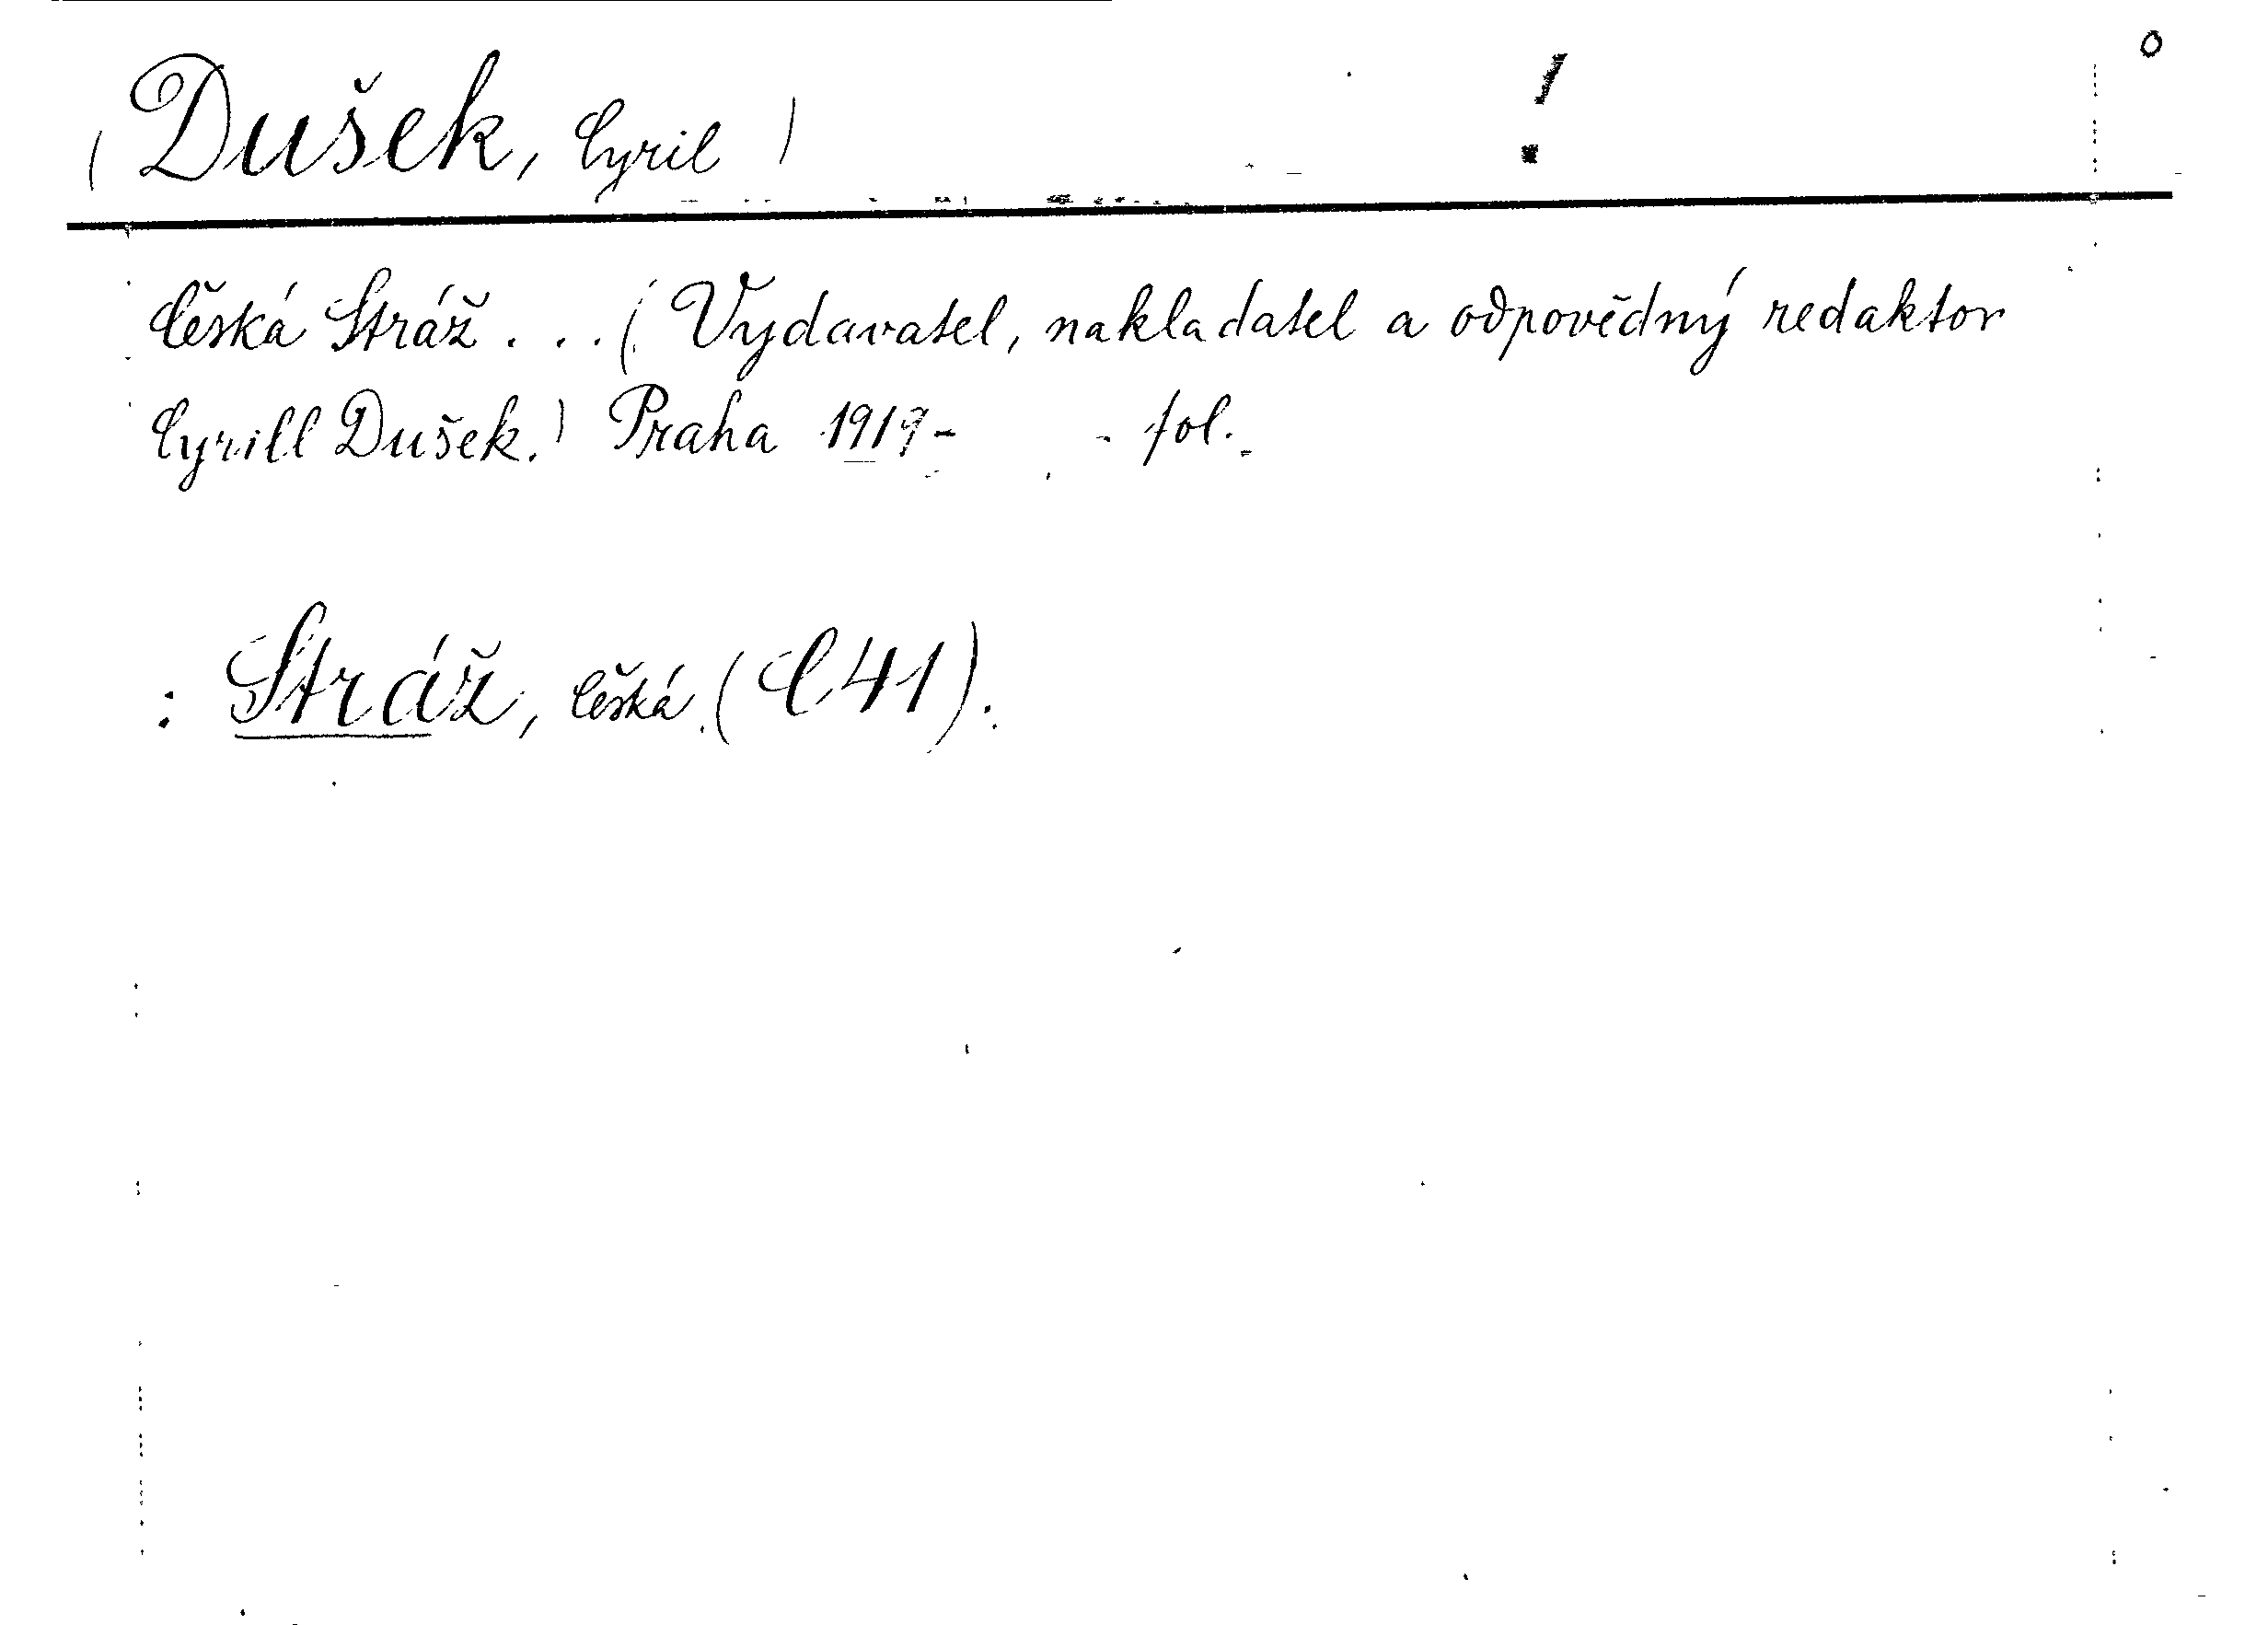 (Dušek, Cyril) ! o
Česká Stráž...(Vydavatel, nakladatel a odpovědný redaktor
Cyrill Dušek.) Praha 1919- fol.
: Stráž, Česká (C 41).